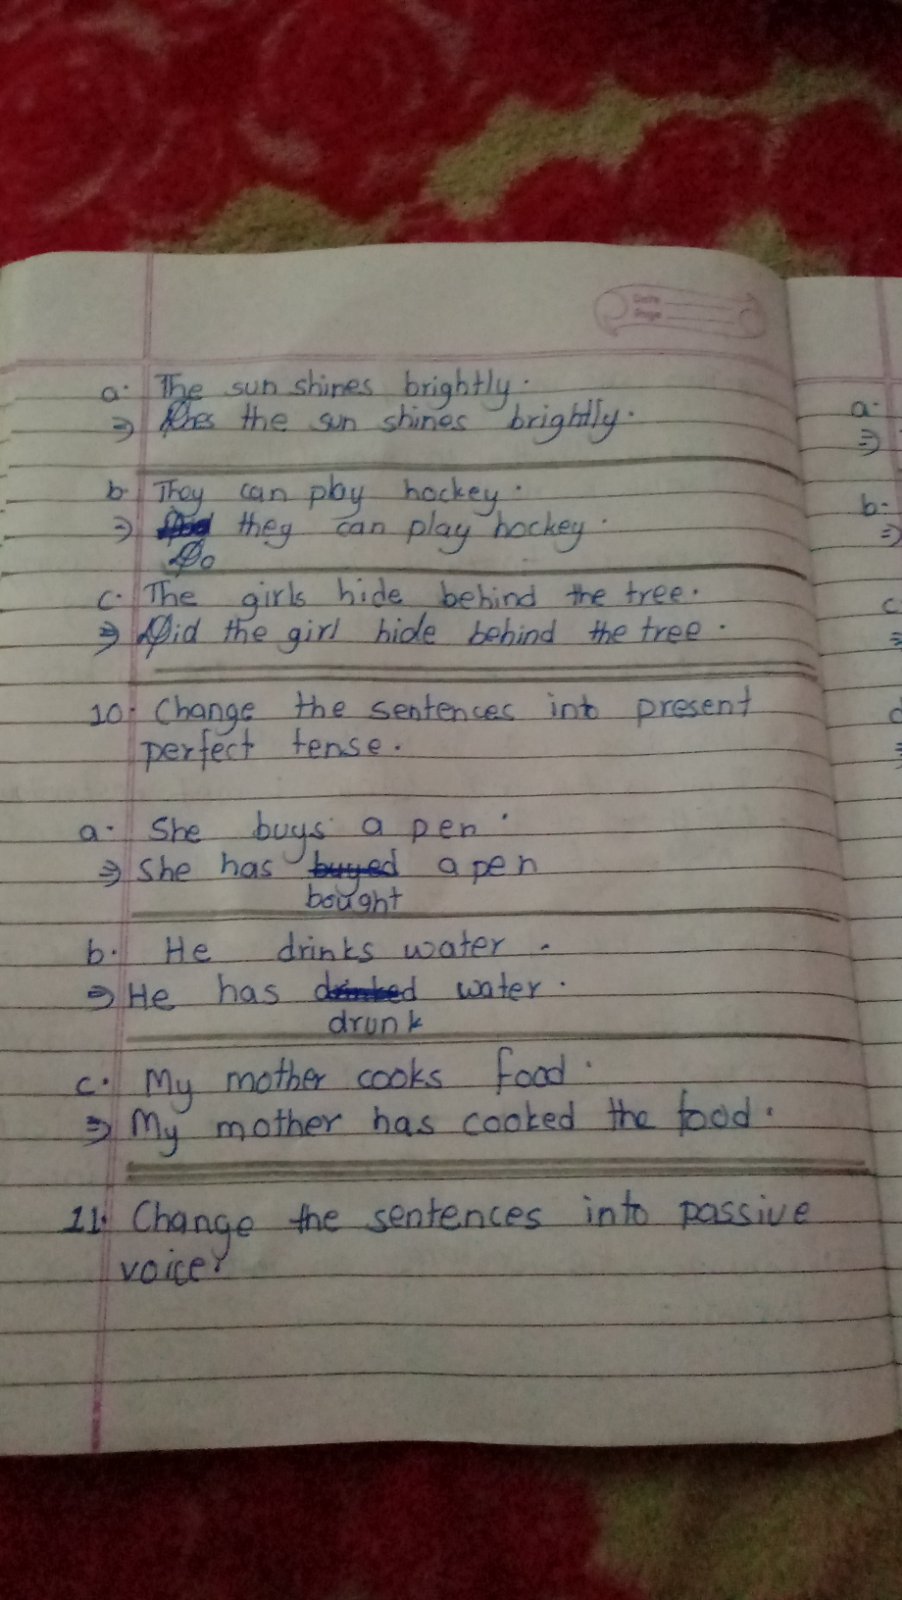 Date
Page
a. The sun shines brightly.
⇒ Does the sun shines brightly.
b. They can play hockey.
⇒ they can play hockey.
Do
c. The girls hide behind the tree.
⇒ Did the girl hide behind the tree.
10. Change the sentences into present
perfect tense.
a. She buys a pen.
⇒ She has buyed a pen
bought
b. He drinks water.
⇒ He has drinked water.
drunk
c. My mother cooks food.
⇒ My mother has cooked the food.
11. Change the sentences into passive
voice.
a.
⇒
b.
⇒
c
⇒
d
⇒